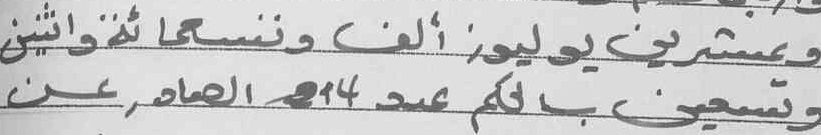 وعشرين يوليوز ألف وتسعمائة واثنين
وتسعين بالحكم عدد 214 الصادر عن